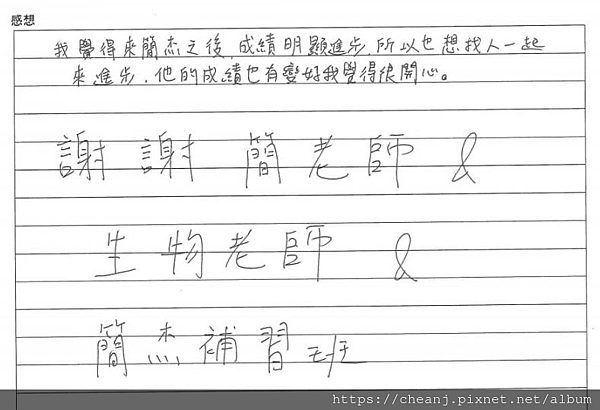 感想
我覺得來簡杰之後,成績明顯進步,所以也想找人一起
來進步,他的成績也有變好我覺得很開心。
謝謝 簡老師 &
生物老師 &
簡杰補習班
https://cheanj.pixnet.net/album